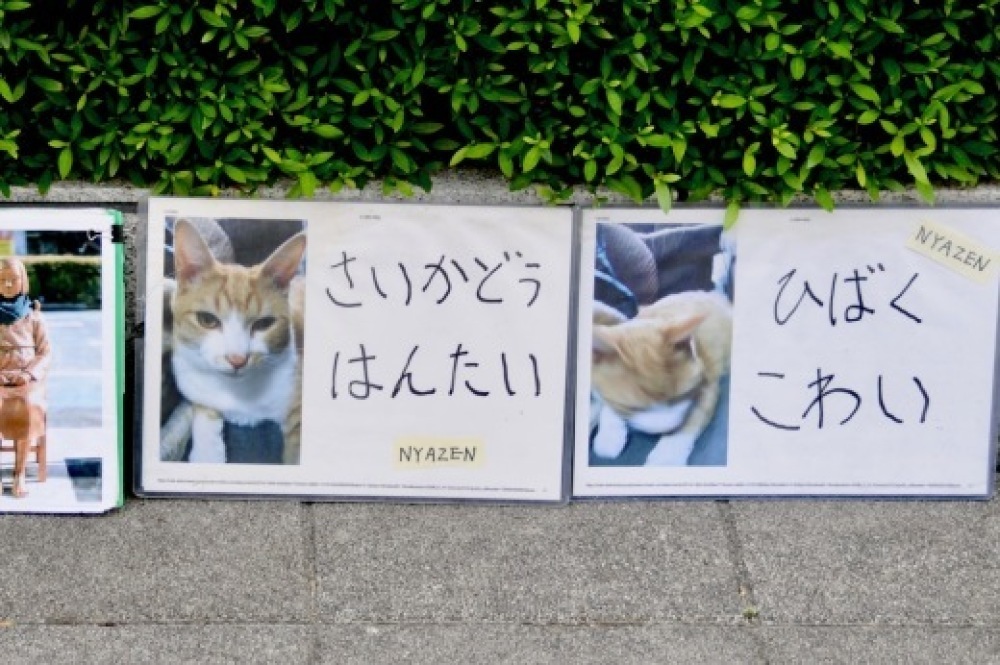 さいかどう
はんたい
NYAZEN
NYAZEN
ひばく
こわい